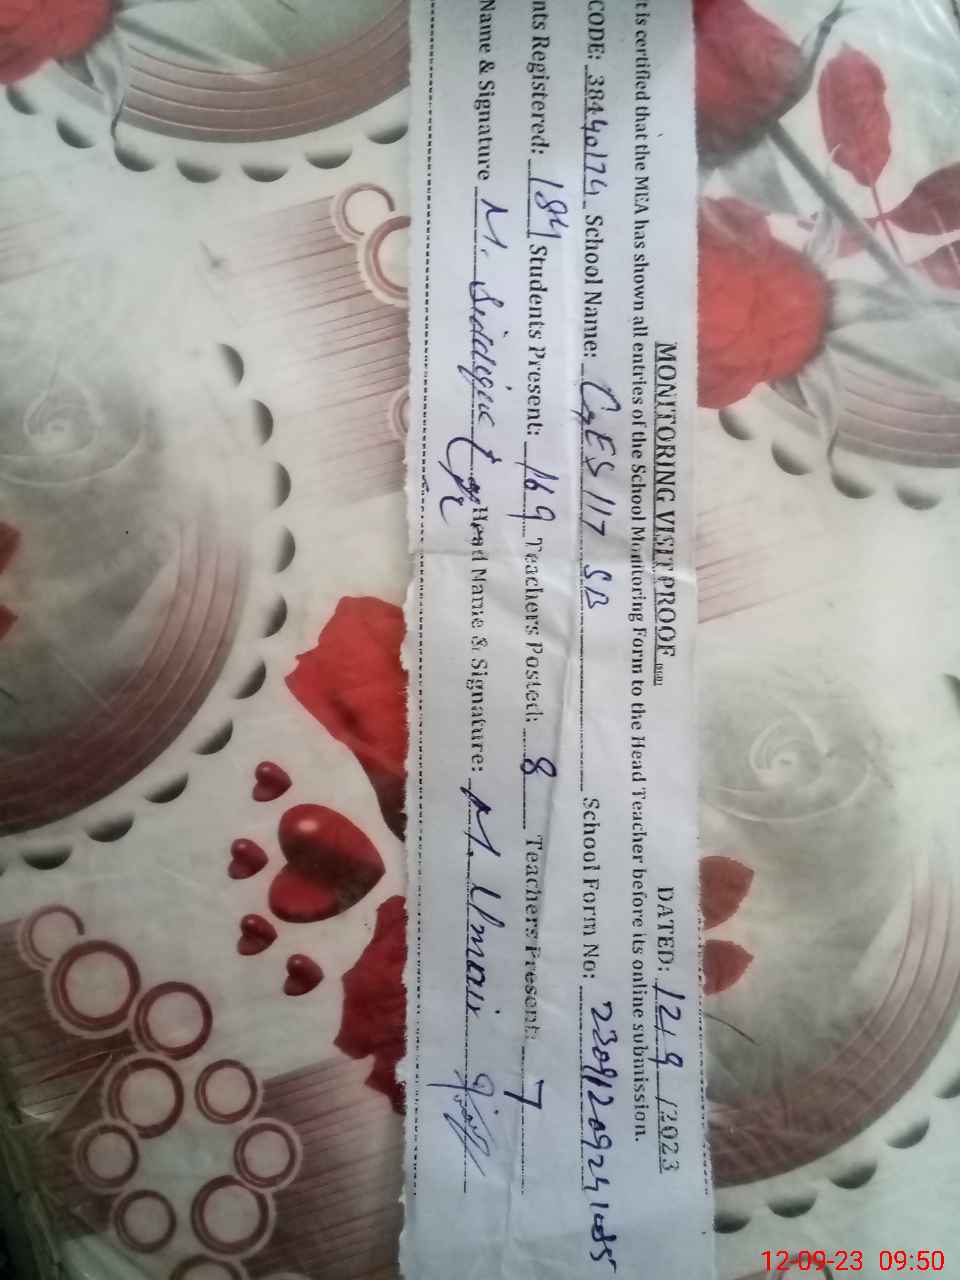 MONITORING VISIT PROOF DATED: 12/9/2023
t is certified that the MEA has shown all entries of the School Monitoring Form to the Head Teacher before its online submission.
CODE: 38440174 School Name: GES 117 SB School Form No:
nts Registered: 184 Students Present: 169 Teachers Posted: 8 Teachers Present: 7
Name & Signature M. Siddique Head Name & Signature: M. Umair
12-09-23 09:50